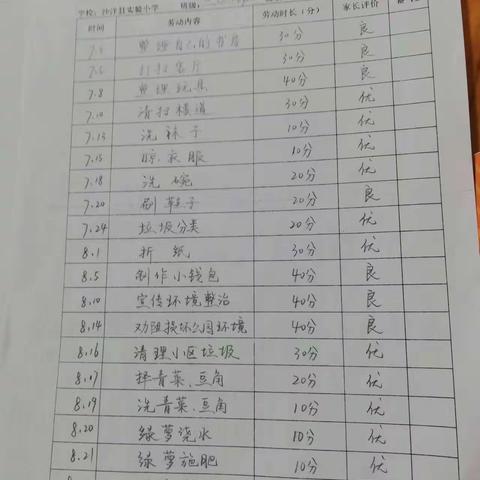 学校：沙洋县实验小学 班级：
时间 劳动内容 劳动时长（分） 家长评价 备注
7.5 整理自己的书房 30分 良
打扫客厅 30分 良
7.8 整理玩具 40分 良
7.10 清扫楼道 30分 优
7.13 洗袜子 10分 优
7.15 晾衣服 10分 优
7.18 洗碗 20分 优
7.20 刷鞋子 20分 良
7.24 垃圾分类 20分 优
8.1 折纸 30分 优
8.5 制作小钱包 40分 良
8.10 宣传环境整治 40分 良
8.14 劝阻损坏公园环境 40分 良
8.16 清理小区垃圾 30分 优
8.17 择青菜、豆角 20分 优
8.19 洗青菜、豆角 10分 优
8.20 绿萝浇水 10分 优
8.21 绿萝施肥 10分 优